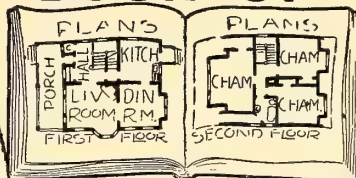 PLANS
PORCH
HALL
KITCH
LIV.
ROOM
DIN
RM.
FIRST FLOOR
PLANS
CHAM
CHAM
CHAM.
SECOND FLOOR